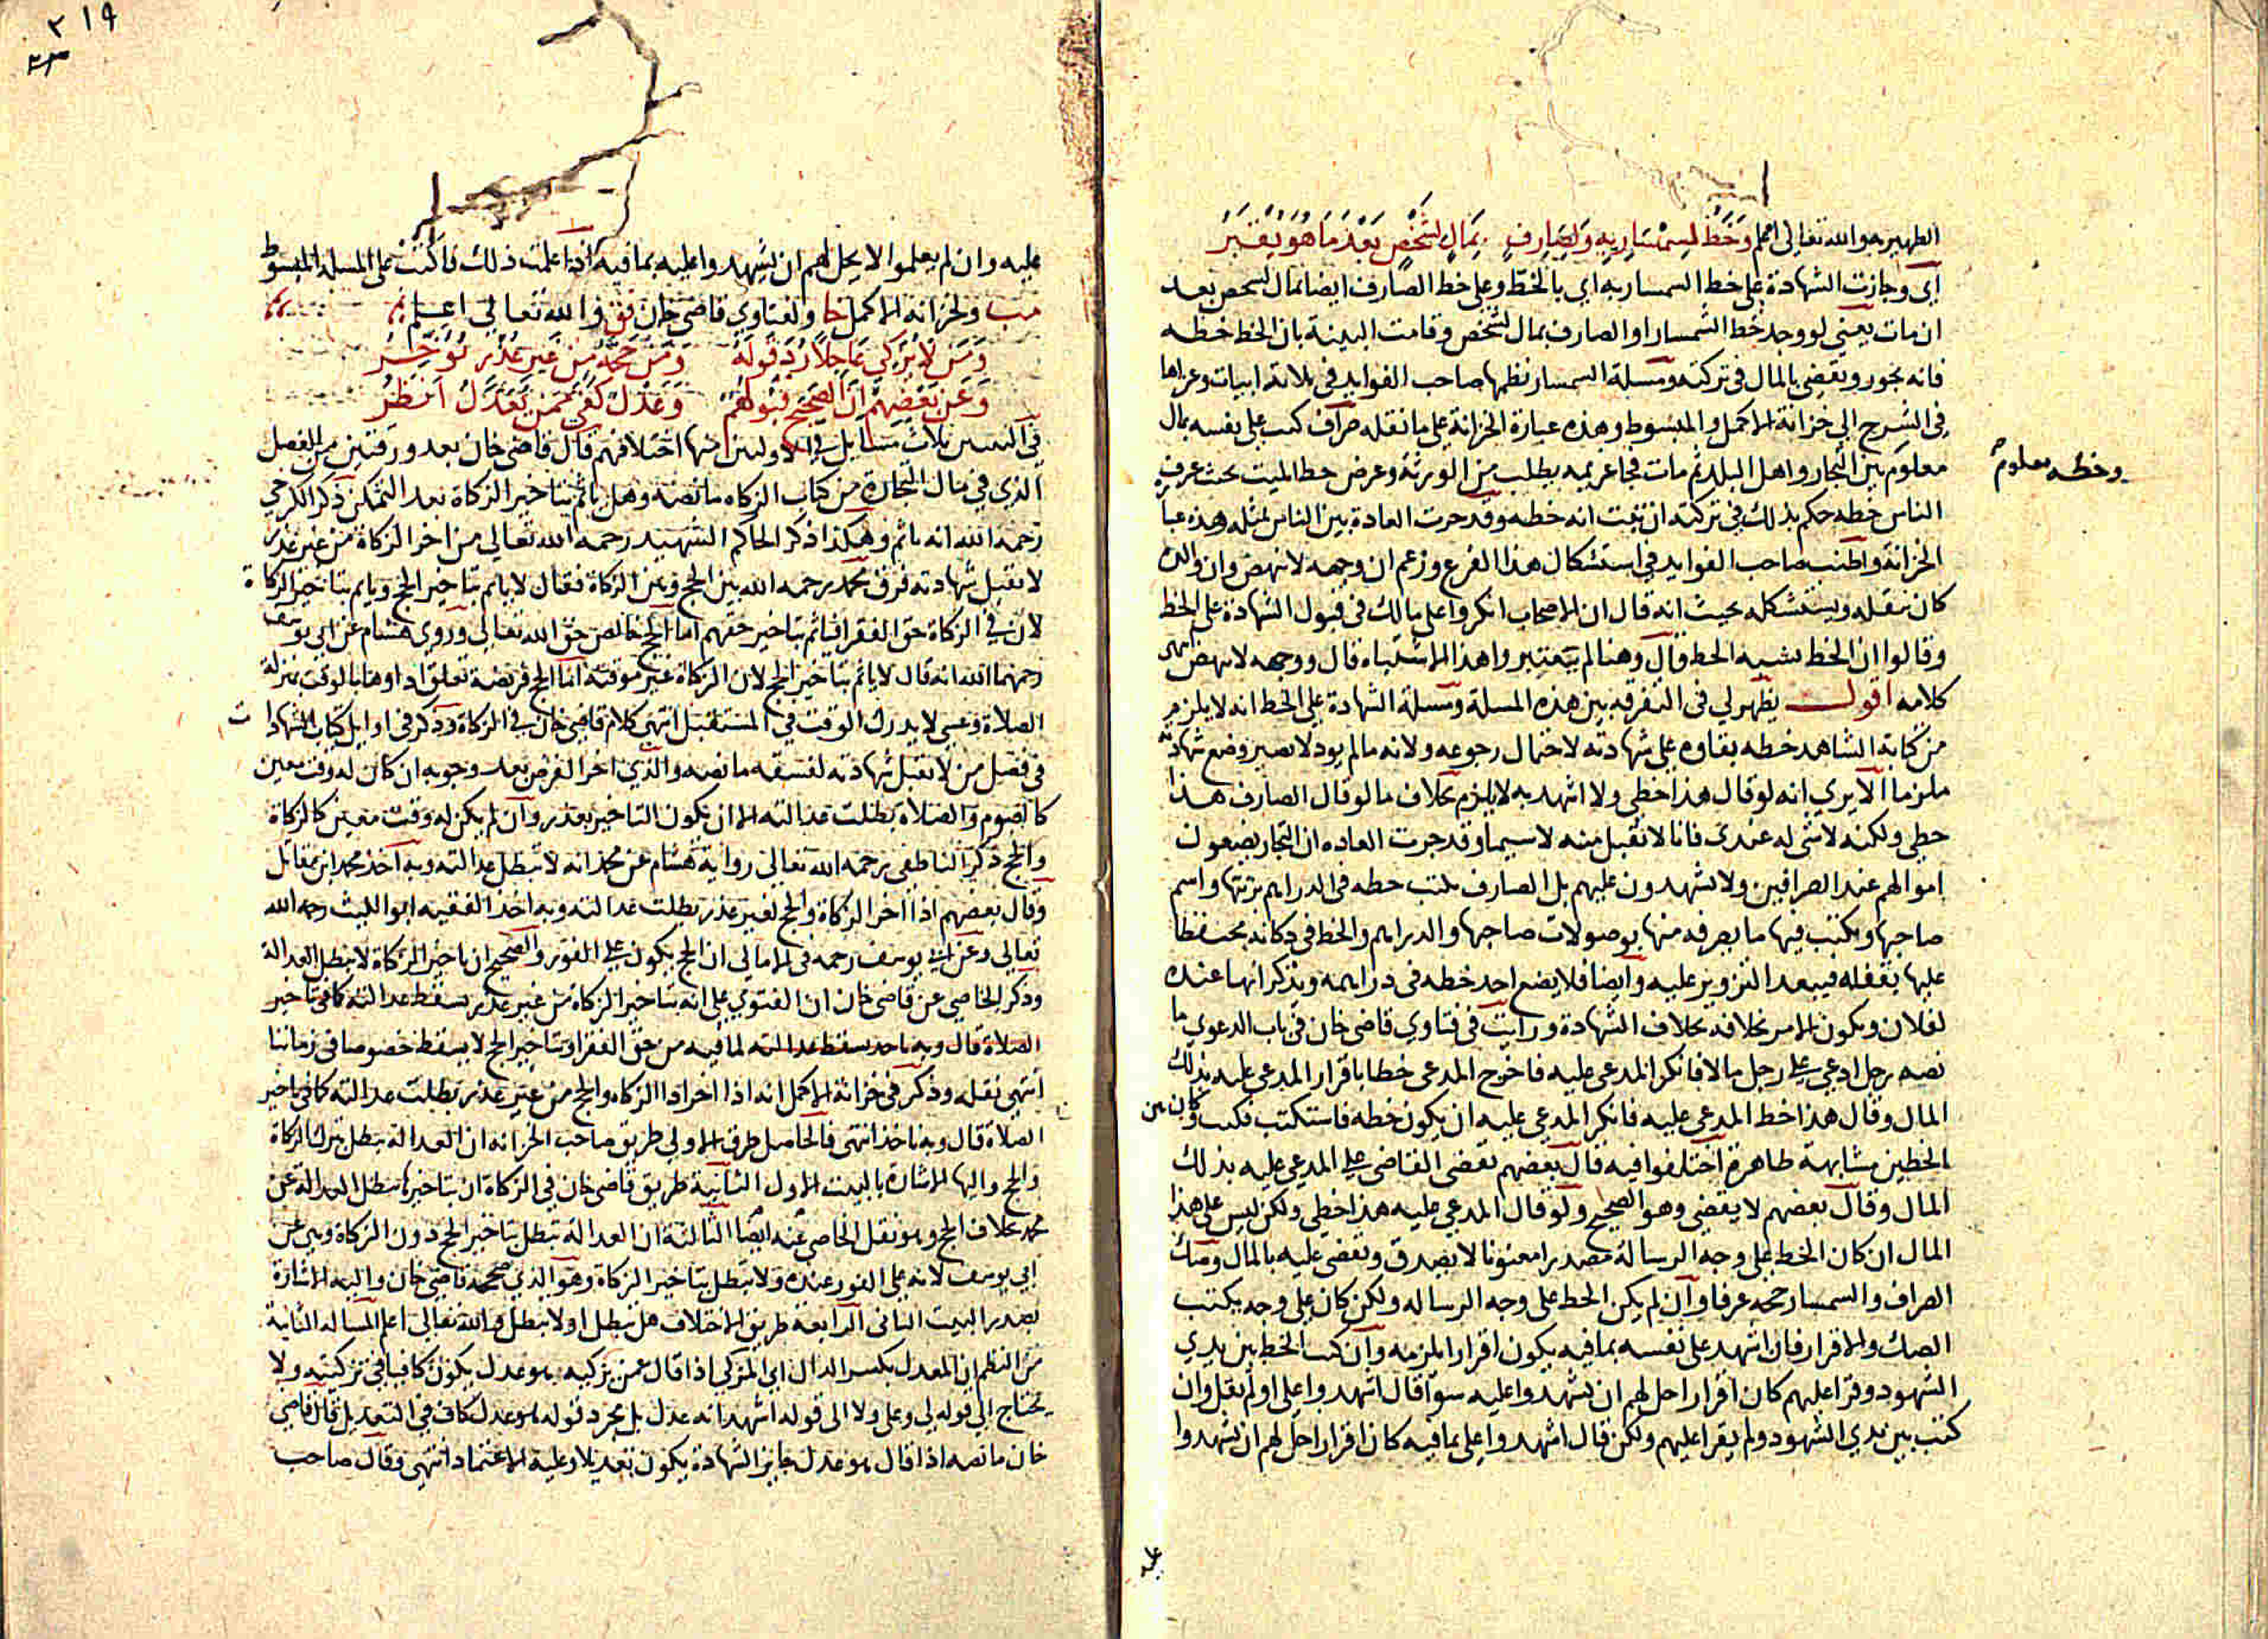 الظهير به والله تعالى اعلم وَخَطُّ لِسِمْسَارٍ بِهِ وَلِصَارِفٍ بِمَالٍ لِشَخْصٍ بَعْدَ مَا هُوَ يُقْبَرُ
اى وجازت الشهادة على خط السمسار به اي بالخط وعلى خط الصارف ايضا بمال لشخص بعد
ان مات يعني لو وجد خط السمسار او الصارف بمال لشخص وقامت البينة بان الخط خطه
فانه يجوز ويقضي بالمال في تركته ومسئلة السمسار نظمها صاحب الفوايد في ثلاثة ابيات وعزاها
في الشرح الي خزانة الاكمل والمبسوط وهذه عبارة الخزانة على ما نقله صراف كتب على نفسه بمال
معلوم بين التجار واهل البلد ثم مات فجا غريمه يطلب من الورثة وعرض خط الميت بحيث عرف
وخطه معلوم
الناس خطه حكم بذلك في تركته ان ثبت انه خطه وقد جرت العادة بين الناس بمثله وهذه عبا
الخزانة واطنب صاحب الفوايد في استشكال هذا الفرع وزعم ان وجهه لا ينهض وان والده
كان ينقله ويستشكله بحيث انه قال ان الاصحاب انكروا على مالك في قبول الشهادة على الخط
وقالوا ان الخط يشبه الخط قال وهنا لم يعتبروا هذا الاشتباه قال ووجهه لا ينهض انتهى
كلامه اقول يظهر لي في التفرقة بين هذه المسلة ومسلة الشهادة على الخط انه لا يلزم
من كتابة الشاهد خطه بقاوه على شهادته لاحتمال رجوعه ولانه ما لم يود لا يصير وضع شهادته
ملزما الا يري انه لو قال هذا خطي ولا اشهد به لا يلزم بخلاف ما لو قال الصارف هذا
خطي ولكنه لا شى له عندي فانا لا نقبل منه لا سيما وقد جرت العاده ان التجار يضعون
اموالهم عند الصرافين ولا يشهدون عليهم بل الصارف يكتب خطه في الدراهم برتبتها واسم
صاحبها ويكتب فيها ما يصرفه منها بوصولات صاحبها والدراهم والخط في دكانه محتفظا
عليها بقفله فيبعد التزوير عليه وايضا فلا يضع احد خطه في دراهمه ويذكر انها عنده
لفلان ويكون الامر بخلافه بخلاف الشهادة ورايت في فتاوي قاضي خان في باب الدعوي ما
نصه رجل ادعي على رجل مالا فانكر المدعى عليه فاخرج المدعى خطا باقرار المدعى عليه بذلك
المال وقال هذا خط المدعي عليه فانكر المدعي عليه ان يكون خطه فاستكتب فكتب وكان بين
الخطين مشابهة ظاهرة اختلفوا فيه قال بعضهم يقضى القاضى على المدعي عليه بذلك
المال وقال بعضهم لا يقضي وهو الصحيح ولو قال المدعي عليه هذا خطي ولكن ليس على هذا
المال ان كان الخط على وجه الرسالة مصدرا معنونا لا يصدق ويقضى عليه بالمال وصك
الصراف والسمسار حجة عرفا وان لم يكن الخط على وجه الرسالة ولكن كان على وجه يكتب
الصك والاقرار فان اشهد على نفسه بما فيه يكون اقرارا يلزمه وان كتب الخط بين يدي
الشهود وقرا عليهم كان اقرارا حل لهم ان يشهدوا عليه سوا قال اشهدوا على او لم يقل وان
كتب بين يدي الشهود ولم يقرا عليهم ولكن قال اشهدوا على بما فيه كان اقرارا حل لهم ان يشهدوا
عليه
٢١٩
عليه وان لم يعلموا لا يحل لهم ان يشهدوا عليه بما فيه اذا علمت ذلك فاكتب على المسلة المبسوط
مب ولخزانة الاكمل خا ولفتاوي قاضي خان فق والله تعالى اعلم
وَمَن لَا يُزَكِّي عَاجِلًا رُدَّ قَولُهُ وَمَن حَجَّهُ مِن غَيرِ عُذرٍ تُؤَخَّرُ
وَعَن بَعضِهِم أَنَّ الصَّحِيحَ قَبُولُهُم وَعَدلٌ كَفَى مِمَّن يُعَدِّلُ أَنظُرُ
في البيتين ثلاث مسايل في الاوليين منها اختلافهم قال قاضي خان بعد ورقتين من الفصل
الذي في مال التجارة من كتاب الزكاه ما نصه وهل ياثم بتاخير الزكاة بعد التمكن ذكر الكرخي
رحمه الله انه ياثم وهكذا ذكر الحاكم الشهيد رحمه الله تعالي من اخر الزكاة من غير عذر
لا تقبل شهادته فرق محمد رحمه الله بين الحج وبين الزكاة فقال لا ياثم بتاخير الحج وياثم بتاخير الزكاة
لان في الزكاة حق الفقرا فياثم بتاخير حقهم اما الحج خالص حق الله تعالي وروي هشام عن ابي يوسف
رحمهما الله انه قال لا ياثم بتاخير الحج لان الزكاة غير موقته اما الحج فريضة تعلق اداوها بالوقت بمنزلة
الصلاة وعسي لا يدرك الوقت في المستقبل انتهى كلام قاضي خان في الزكاة وذكر في اوايل كتاب الشهادات
في فصل من لا تقبل شهادته لفسقه ما نصه والذي اخر الفرض بعد وجوبه ان كان له وقت معين
كالصوم والصلاة بطلت عدالته الا ان يكون التاخير بعذر وان لم يكن له وقت معين كالزكاة
والحج ذكر الناطفي رحمه الله تعالى رواية هشام عن محمد انه لا تبطل عدالته وبه اخذ محمد ابن مقاتل
وقال بعضهم اذا اخر الزكاة والحج لغير عذر بطلت عدالته وبه اخذ الفقيه ابو الليث رحمه الله
تعالي وعن ابي يوسف رحمه في الامالي ان الحج يكون على الفور والصحيح ان تاخير الزكاة لا يبطل العدالة
وذكر الخاصي عن قاضي خان ان الفتوي على انه بتاخير الزكاة من غير عذر يسقط عدالته كما في تاخير
الصلاة قال وبه ناخذ يسقط عدالته لما فيه من حق الفقرا وبتاخير الحج لا يسقط خصوصا في زماننا
انتهى نقله وذكر في خزانة الاكمل انه اذا اخر ادا الزكاه والحج من غير عذر بطلت عدالته كما في تاخير
الصلاة قال وبه ناخذ انتهى فالحاصل طرق الاولي طريق صاحب الخزانه ان العدالة تبطل بترك الزكاة
والحج واليها الاشارة بالبيت الاول الثانية طريق قاضي خان في الزكاة ان بتاخيرها تبطل العدالة عن
محمد بخلاف الحج وهو نقل الخاصي عنه ايضا الثالثة ان العدالة تبطل بتاخير الحج دون الزكاة وهي عن
ابي يوسف لانه على الفور عنده ولا تبطل بتاخير الزكاة وهو الذي صححه قاضي خان واليه الاشارة
بصدر البيت الثاني الرابعة طريق الاختلاف هل تبطل او لا تبطل والله تعالى اعلم المسالة الثانية
من النظم ان المعدل بكسر الدال اي المزكي اذا قال عمن يزكيه هو عدل يكون كافيا في تزكيته ولا
يحتاج الي قوله لي وعلى ولا الى قوله اشهد انه عدل بل بمجرد قوله هو عدل كاف في التعديل قال قاضي
خان ما نصه اذا قال هو عدل جايز الشهادة يكون تعديلا وعليه الاعتماد انتهى وقال صاحب